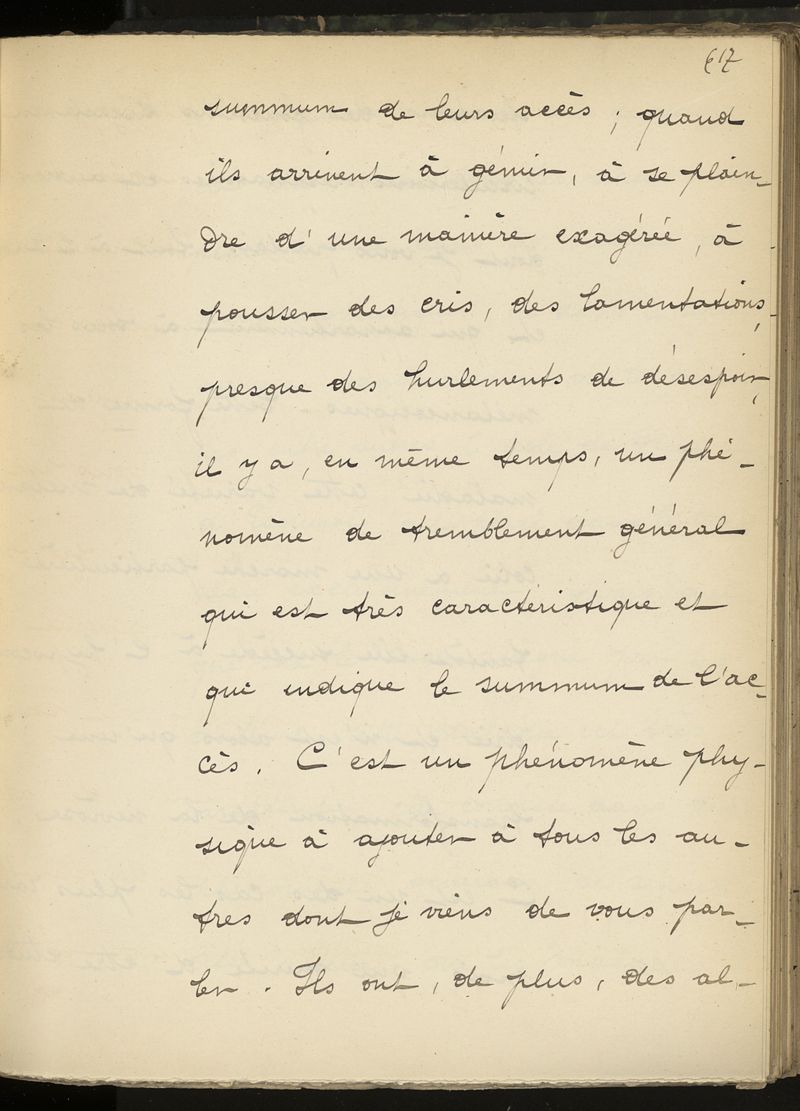 617
summum de leurs accès ; quand
ils arrivent à gémir, à se plain-
dre d'une manière exagérée, à
pousser des cris, des lamentations,
presque des hurlements de désespoir,
il y a, en même temps, un phé-
nomène de tremblement général
qui est très caractéristique et
qui indique le summum de l'ac-
cès. C'est un phénomène phy-
sique à ajouter à tous les au-
tres dont je viens de vous par-
ler. Ils ont, de plus, des al-